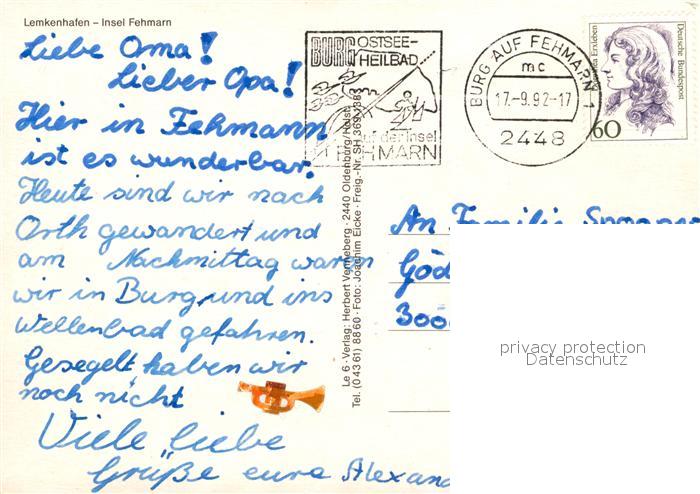 Lemkenhafen – Insel Fehmarn
Liebe Oma!
Lieber Opa!
Hier in Fehmann
ist es wunderbar.
Heute sind wir nach
Orth gewandert und
am Nachmittag waren
wir in Burg, und ins
Wellenbad gefahren.
Gesegelt haben wir
noch nicht
Viele liebe
Grüße eure Alexan
Le 6 · Verlag: Herbert Venneberg · 2440 Oldenburg/Holst.
Tel. (0 43 61) 88 60 · Foto: Joachim Eicke · Freig.-Nr. SH 369-138
BURG OSTSEE-
HEILBAD
auf der Insel
FEHMARN
BURG AUF FEHMARN 1
mc
17.-9.92-17
2448
Erxleben
Deutsche Bundespost
60
An Familie
Göd
300
privacy protection
Datenschutz